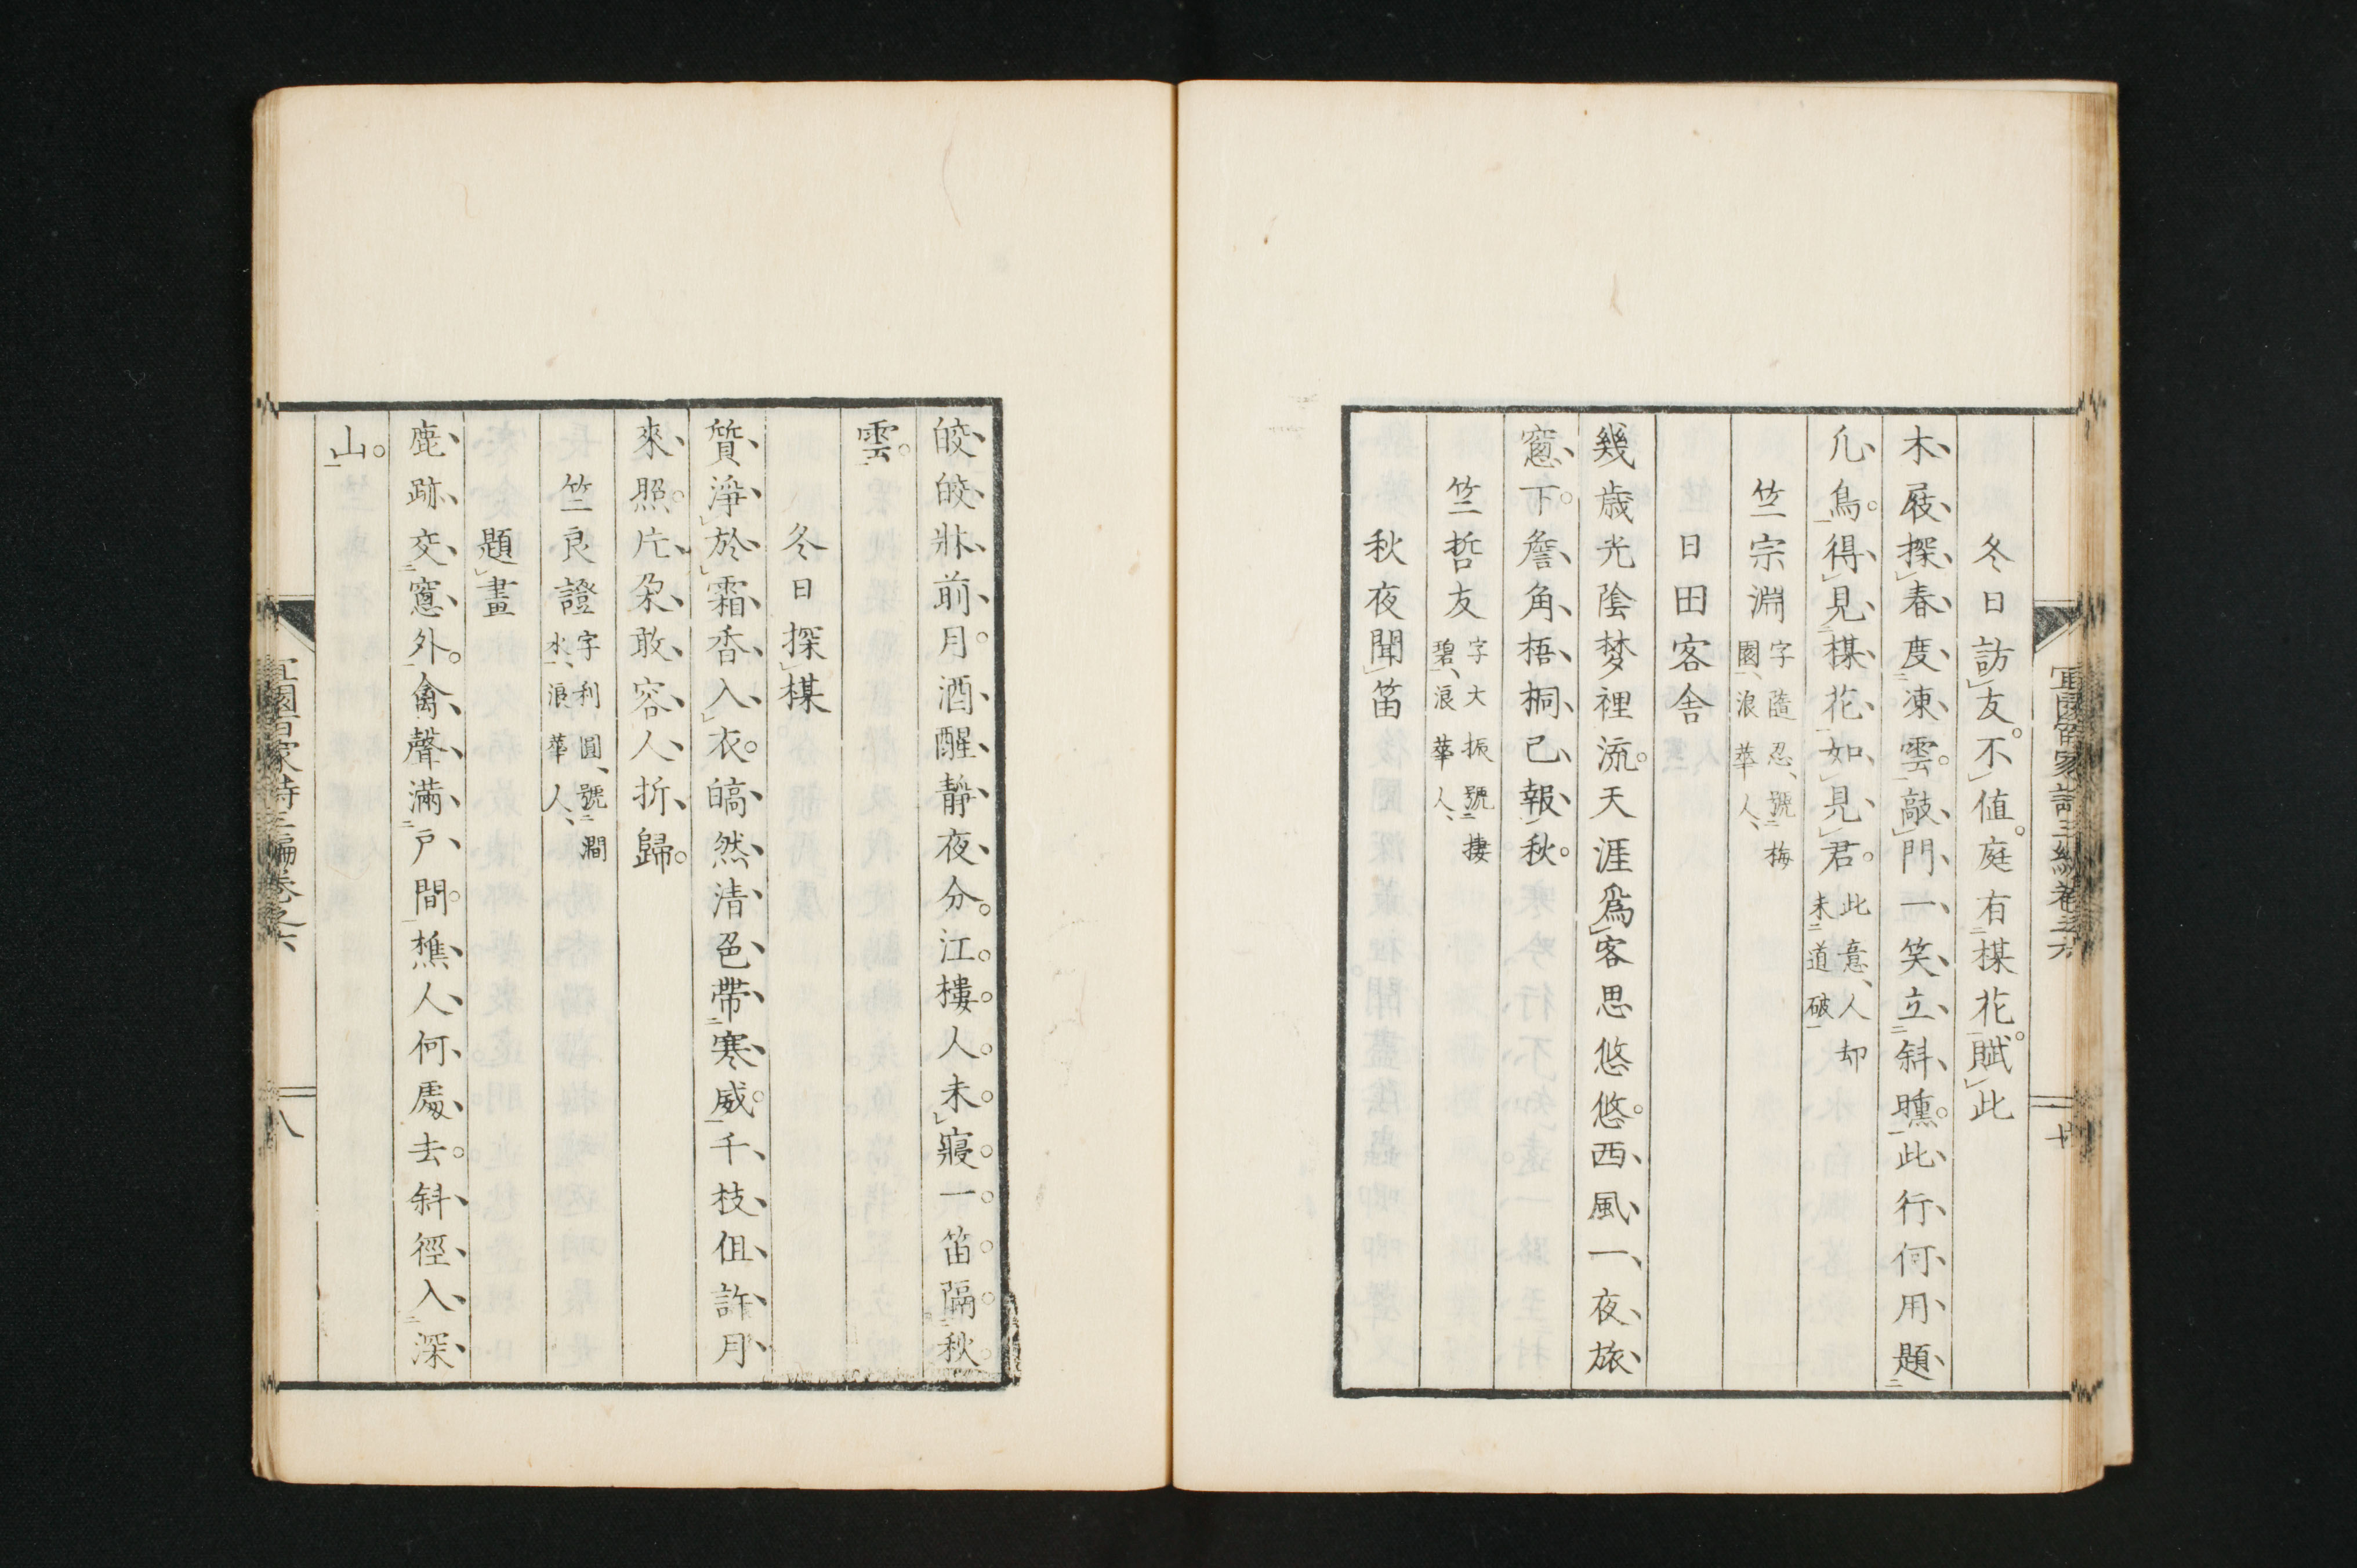 冬日訪友不値庭有楳花賦此
木屐探春度凍雲敲門一笑立斜曛此行何用題
凢鳥得見楳花如見君此意人却
未道破
竺宗淵字蔭忍號梅
園浪華人
日田客舎
幾歳光陰梦裡流天涯爲客思悠悠西風一夜旅
窻下詹角梧桐已報秋
竺哲友字大振號棲
碧浪華人
秋夜聞笛
皎皎牀前月酒醒靜夜分江樓人未寢一笛隔秋
雲
冬日探楳
質淨於霜香入衣皜然清色帶寒威千枝但許月
來照片朶敢容人折歸
竺良證字利圓號澗
水浪華人
題畫
鹿跡交窻外禽聲滿戸間樵人何處去斜徑入深
山
宜園百家詩三編巻之六
八